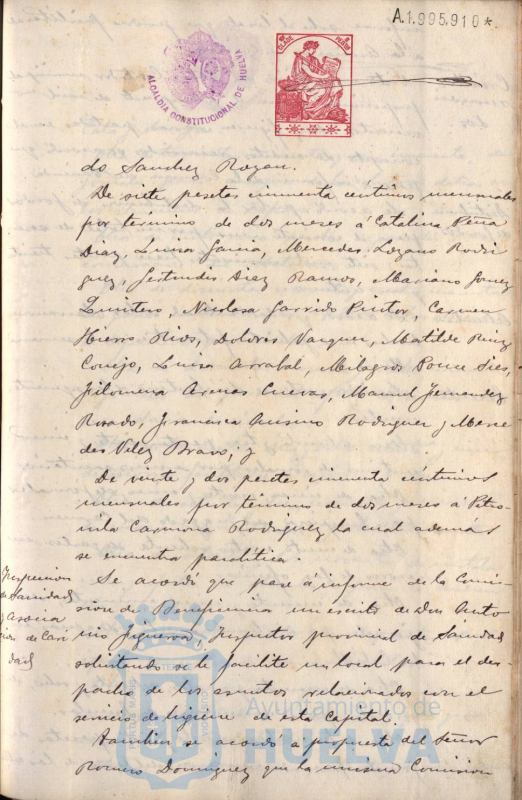 A.1.995.910*
ALCALDIA CONSTITUCIONAL DE HUELVA
do Sanchez Rozan.
De siete pesetas cincuenta céntimos mensuales
por término de dos meses á Catalina Peña
Diaz, Luisa Garcia, Mercedes Lozano Rodri
guez, Gertrudis Diaz Ramos, Mariano Gomez
Quintero, Nicolasa Garrido Pintor, Carmen
Hierro Rios, Dolores Vazquez, Matilde Ruiz
Conejo, Luisa Arrabal, Milagros Ponce
Filomena Arenas Cuevas, Manuel Fernandez
Rosado, Francisca Rodriguez y Merce
des Velez Bravo; y
De veinte y dos pesetas cincuenta céntimos
mensuales por término de dos meses á Petro
nila Carmona Rodriguez la cual además
se encuentra paralítica.
Inspeccion
de Sanidad
dad
Se acordó que pase á informe de la Comi
sion de Beneficencia un escrito de Don Anto
nio Figueroa, Inspector provincial de Sanidad
solicitando se le facilite un local para el des
pacho de los asuntos relacionados con el
servicio de higiene de esta Capital.
Tambien se acordó a propuesta del Señor
Romero Dominguez que la misma Comision
Ayuntamiento de
HUELVA